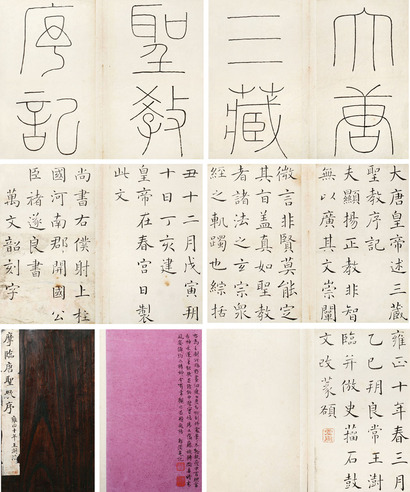 大唐
三藏
聖教
序記
大唐皇帝述三藏
聖教序記
夫顯揚正教非智
無以廣其文崇闡
微言非賢莫能定
其旨盖真如聖教
者諸法之玄宗衆
經之軌躅也綜括
丑十二月戊寅朔
十日丁亥建
皇帝在春宮日製
此文
尚書右僕射上柱
國河南郡開國公
臣褚遂良書
萬文韶刻字
雍正十年春三月
乙巳朔良常王澍
臨并倣史籀石鼓
文改篆額
摩臨唐聖教序